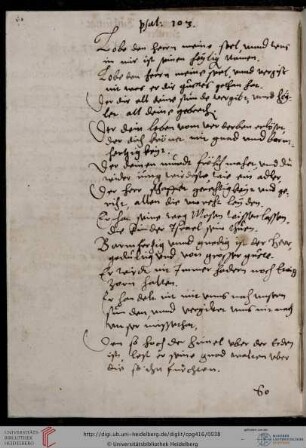 psal. 103.
Lobe den herrn meine seel, vnnd was
in mir ist seinen heylig namen.
Lobe den herrn meine seel, vnd vergiss
nit was er dir guttes gethan hat.
Der dir all deine sünde vergibt, vnnd hey
let all deine gebrech
Der dein leben vom verderben erlöset,
Der dich krönet mit gnad vnnd barm
hertzig keyt.
Der deinen mundt frölich machet, vnd du
wider jung wirdest wie ein adler.
Der herr schaffet gerechtigkeyt vnd ge-
richt, allen die vnrecht leyden.
Er hat seine weg Mosen wissen lassen,
Die kinder Israel sein thuen.
Barmhertzig vnnd gnedig ist der Herr
gedultig vnd von grosser güete.
Er wirdt nit Immer hadern noch Ewig
zorn halten.
Er handelt nit mit vnns nach vnsern
sünden vnnd vergiltet vns nit nach
vnser missethat.
Dan so hoch der himel vber der Erden
ist, lest er seine gnad walten vber
die so ihn fürchten.
So
UNIVERSITÄTS-
BIBLIOTHEK
HEIDELBERG
http://digi.ub.uni-heidelberg.de/diglit/cpg416/0038
© Universitätsbibliothek Heidelberg